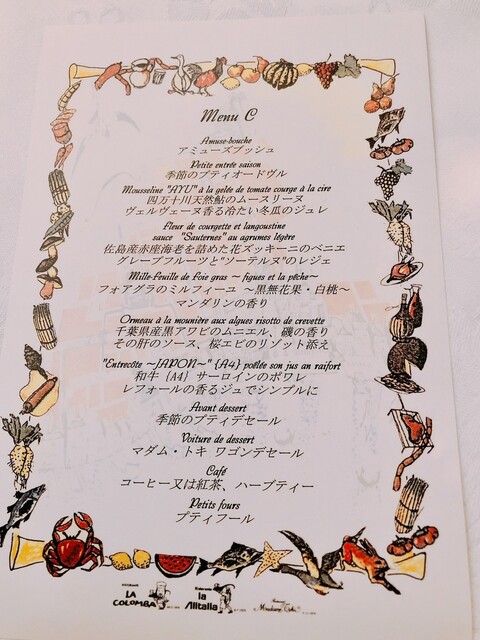 Menu C
Amuse-bouche
アミューズブッシュ
Petite entrée saison
季節のプティオードヴル
Mousseline "AYU" à la gelée de tomate courge à la cire
四万十川天然鮎のムースリーヌ
ヴェルヴェーヌ香る冷たい冬瓜のジュレ
Fleur de courgette et langoustine
sauce "Sauternes" au agrumes légère
佐島産赤座海老を詰めた花ズッキーニのベニエ
グレープフルーツと"ソーテルヌ"のレジェ
Mille-feuille de foie gras ～ figues et la pêche～
フォアグラのミルフィーユ ～黒無花果・白桃～
マンダリンの香り
Ormeau à la mounière aux algues risotto de crevette
千葉県産黒アワビのムニエル、磯の香り
その肝のソース、桜エビのリゾット添え
"Entrecôte ～JAPON～" {A4} poêlée son jus an raifort
和牛 {A4} サーロインのポワレ
レフォールの香るジュでシンプルに
Avant dessert
季節のプティデセール
Voiture de dessert
マダム・トキ ワゴンデセール
Café
コーヒー又は紅茶、ハーブティー
Petits fours
プティフール
LA COLOMBA
la Alitalia
Madame Toki